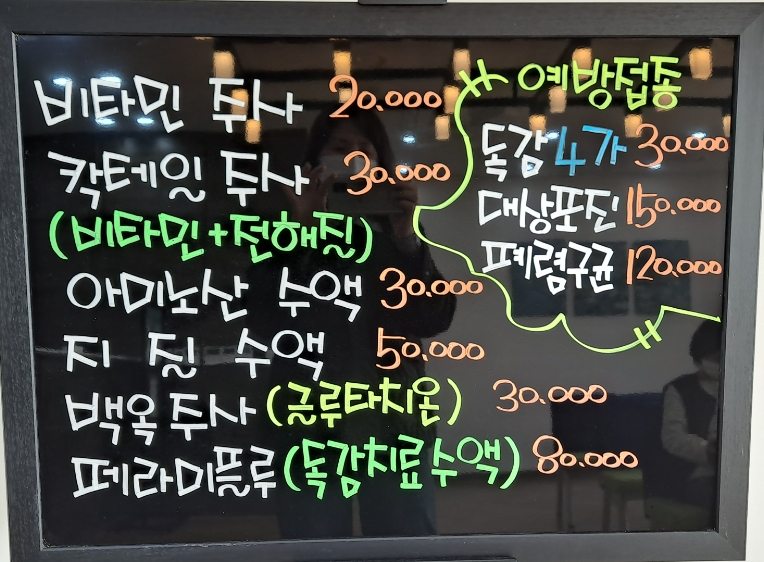 비타민 주사 20.000
칵테일 주사 30.000
(비타민+전해질)
아미노산 수액 30.000
지 질 수액 50.000
백옥주사 (글루타치온) 30.000
페라미플루 (독감치료수액) 80.000
예방접종
독감 4가 30.000
대상포진 150.000
폐렴구균 120.000